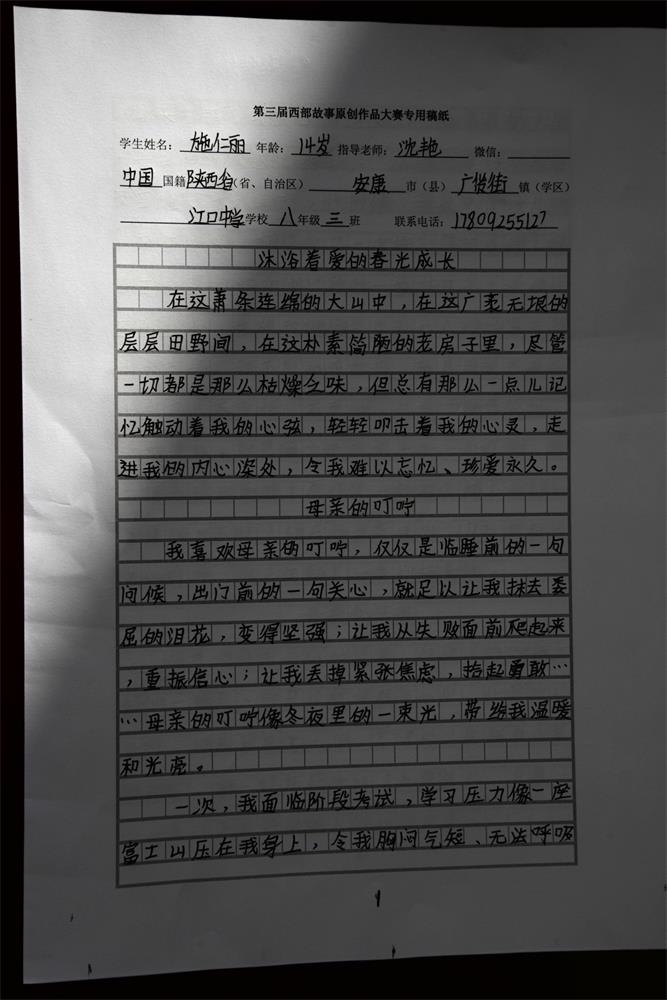 第三届西部故事原创作品大赛专用稿纸
学生姓名：施仁丽 年龄：14岁 指导老师：沈艳 微信：
中国国籍陕西省（省、自治区） 安康 市（县） 广货街 镇（学区）
江口中学学校 八年级 三 班 联系电话：17809255127
沐浴着爱的春光成长
在这萧条连绵的大山中，在这广袤无垠的
层层田野间，在这朴素简陋的老房子里，尽管
一切都是那么枯燥乏味，但总有那么一点儿记
忆触动着我的心弦，轻轻叩击着我的心灵，走
进我的内心深处，令我难以忘忆、珍爱永久。
母亲的叮咛
我喜欢母亲的叮咛，仅仅是临睡前的一句
问候，出门前的一句关心，就足以让我抹去委
屈的泪花，变得坚强；让我从失败面前爬起来
，重振信心；让我丢掉紧张焦虑，拾起勇敢…
…母亲的叮咛像冬夜里的一束光，带给我温暖
和光亮。
一次，我面临阶段考试，学习压力像一座
富士山压在我身上，令我胸闷气短、无法呼吸
1